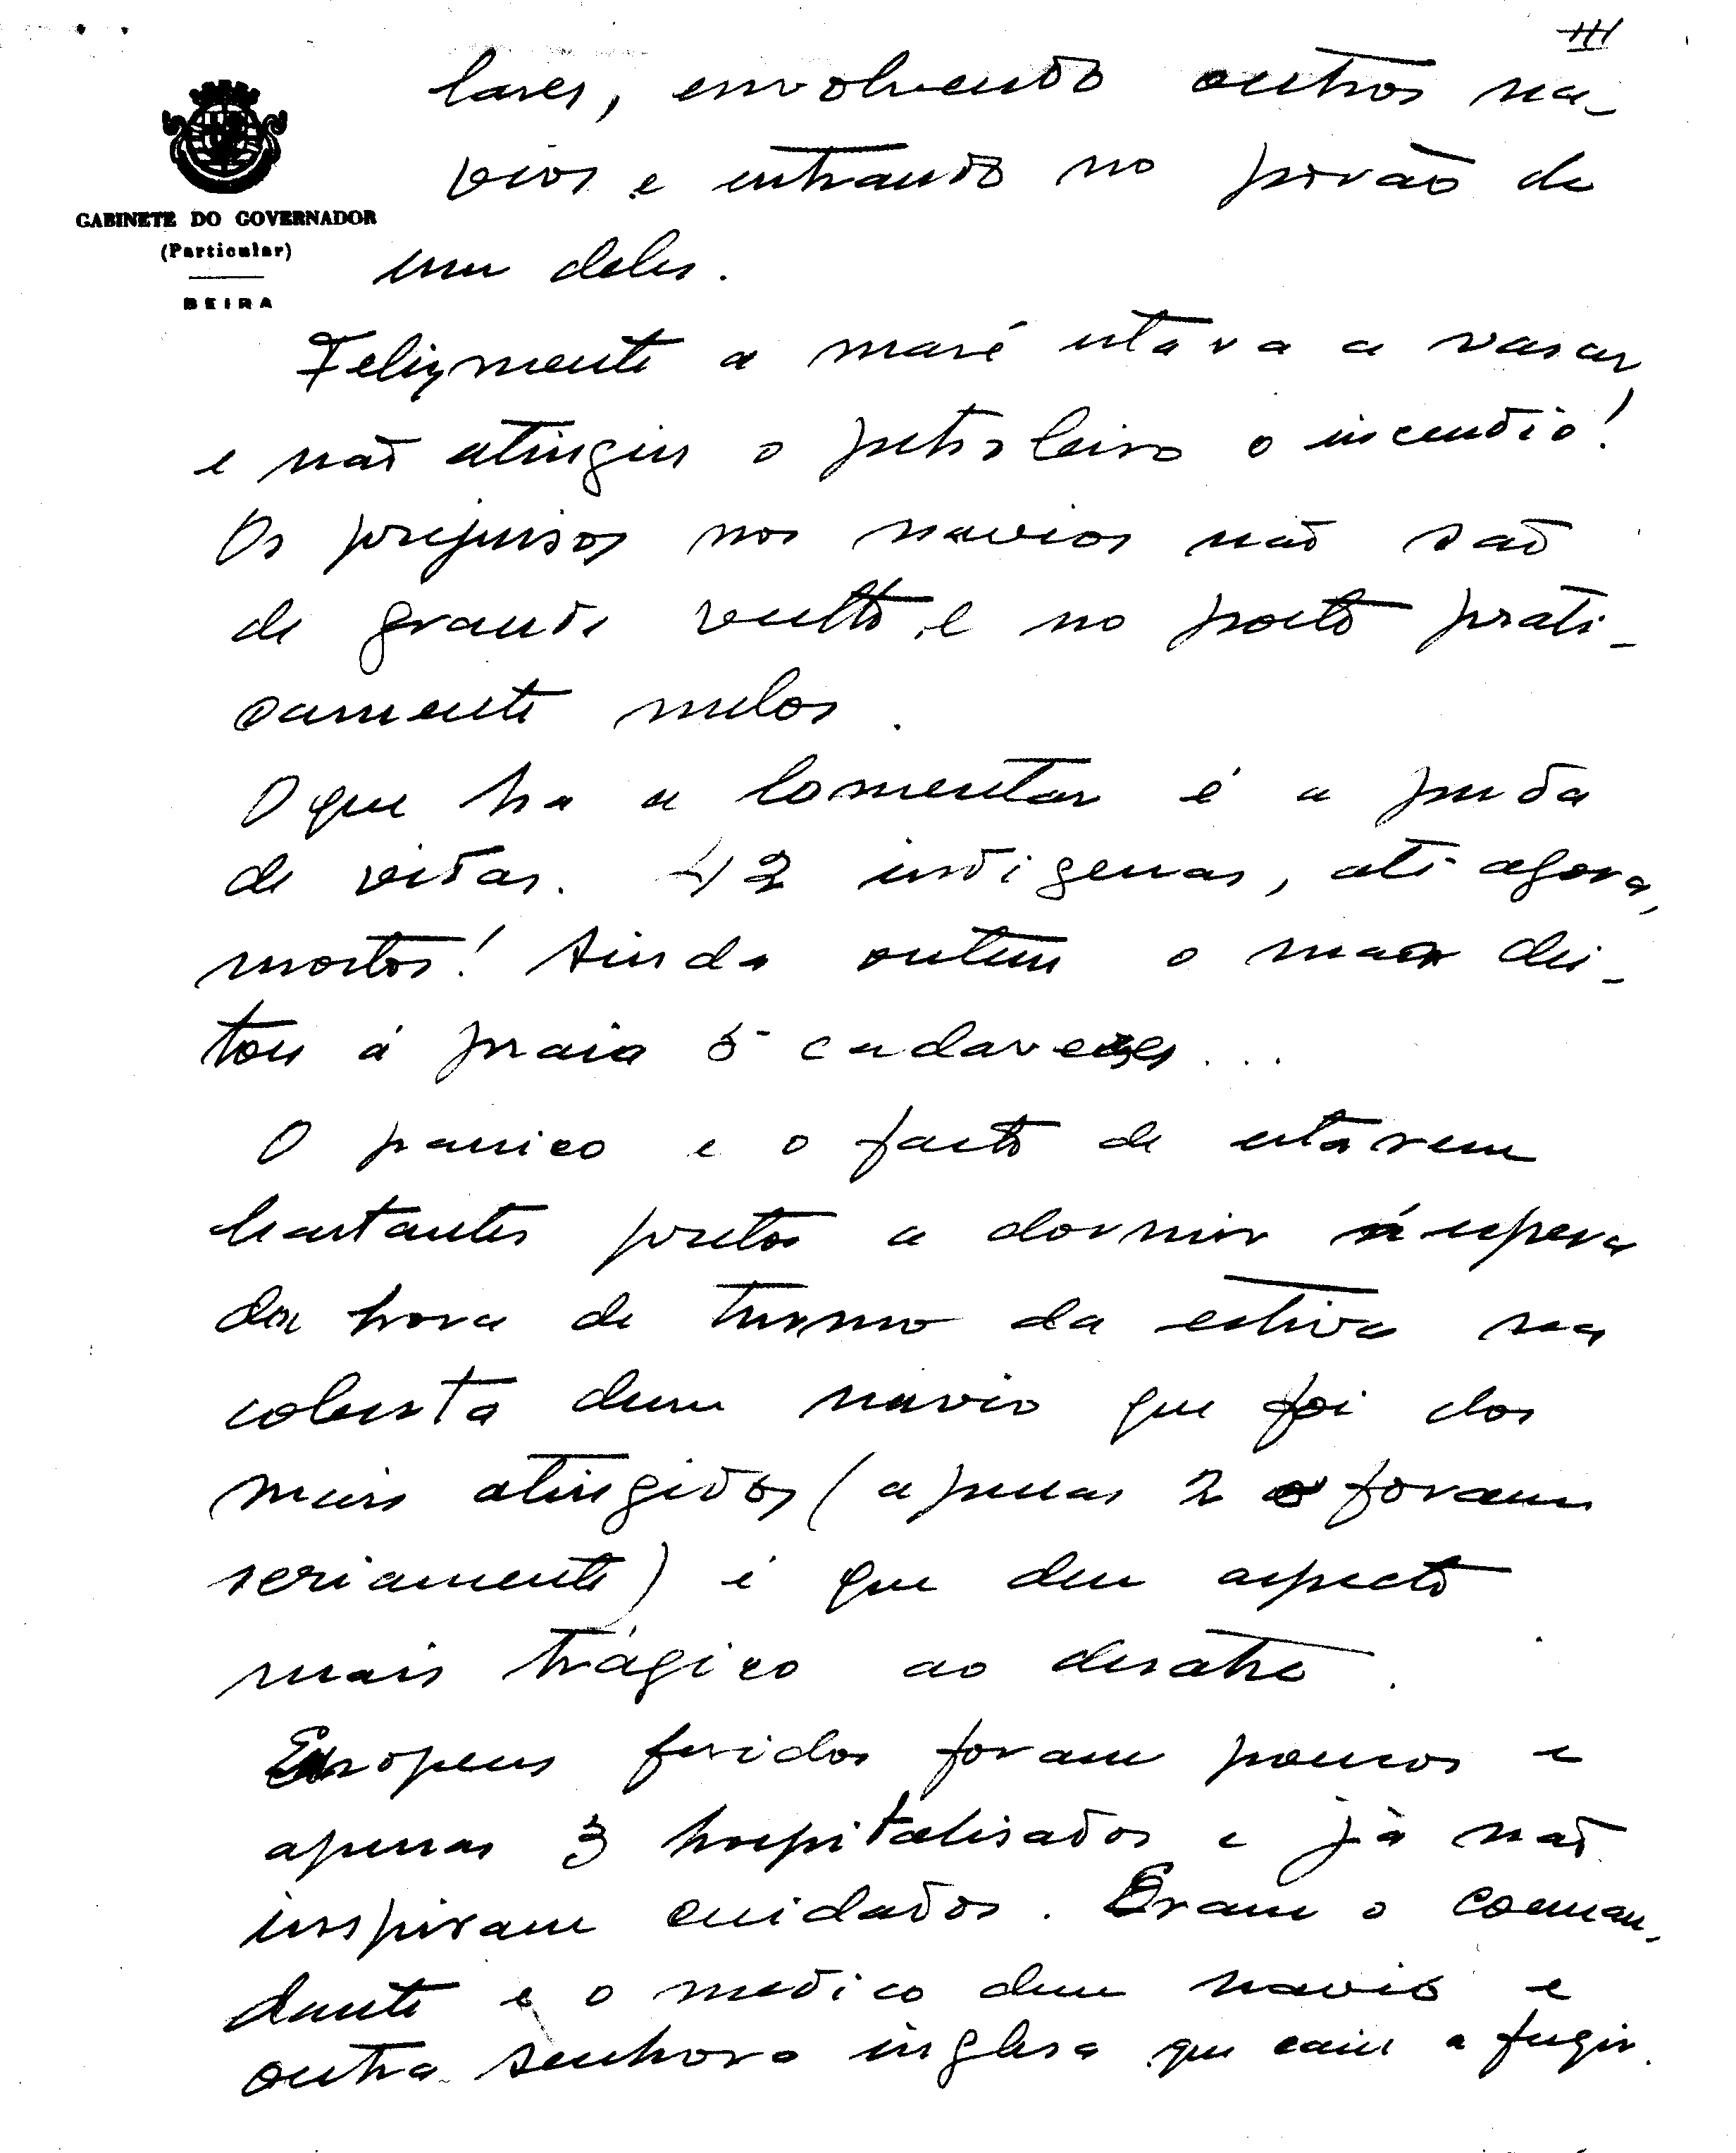 III
GABINETE DO GOVERNADOR
(Particular)
BEIRA
lares, envolvendo outros na-
vios e entrando no porão de
um deles.
Felizmente a maré estava a vasar
e não atingiu o petroleiro o incendio!
Os prejuisos nos navios não são
de grande vulto, e no porto prati-
camente nulos.
O que ha a lamentar é a perda
de vidas. 42 indigenas, até agora,
mortos! Ainda ontem o mar dei-
tou á praia 5 cadaveres...
O panico e o facto de estarem
bastantes pretos a dormir á espera
da hora de turno da estiva na
coberta dum navio que foi dos
mais atingidos (apenas 2 o foram
seriamente) é que deu aspecto
mais trágico ao desastre.
Europeus feridos foram poucos e
apenas 3 hospitalisados e já não
inspiram cuidados. Eram o coman-
dante e o medico dum navio e
outra senhora inglesa que caiu a fugir.